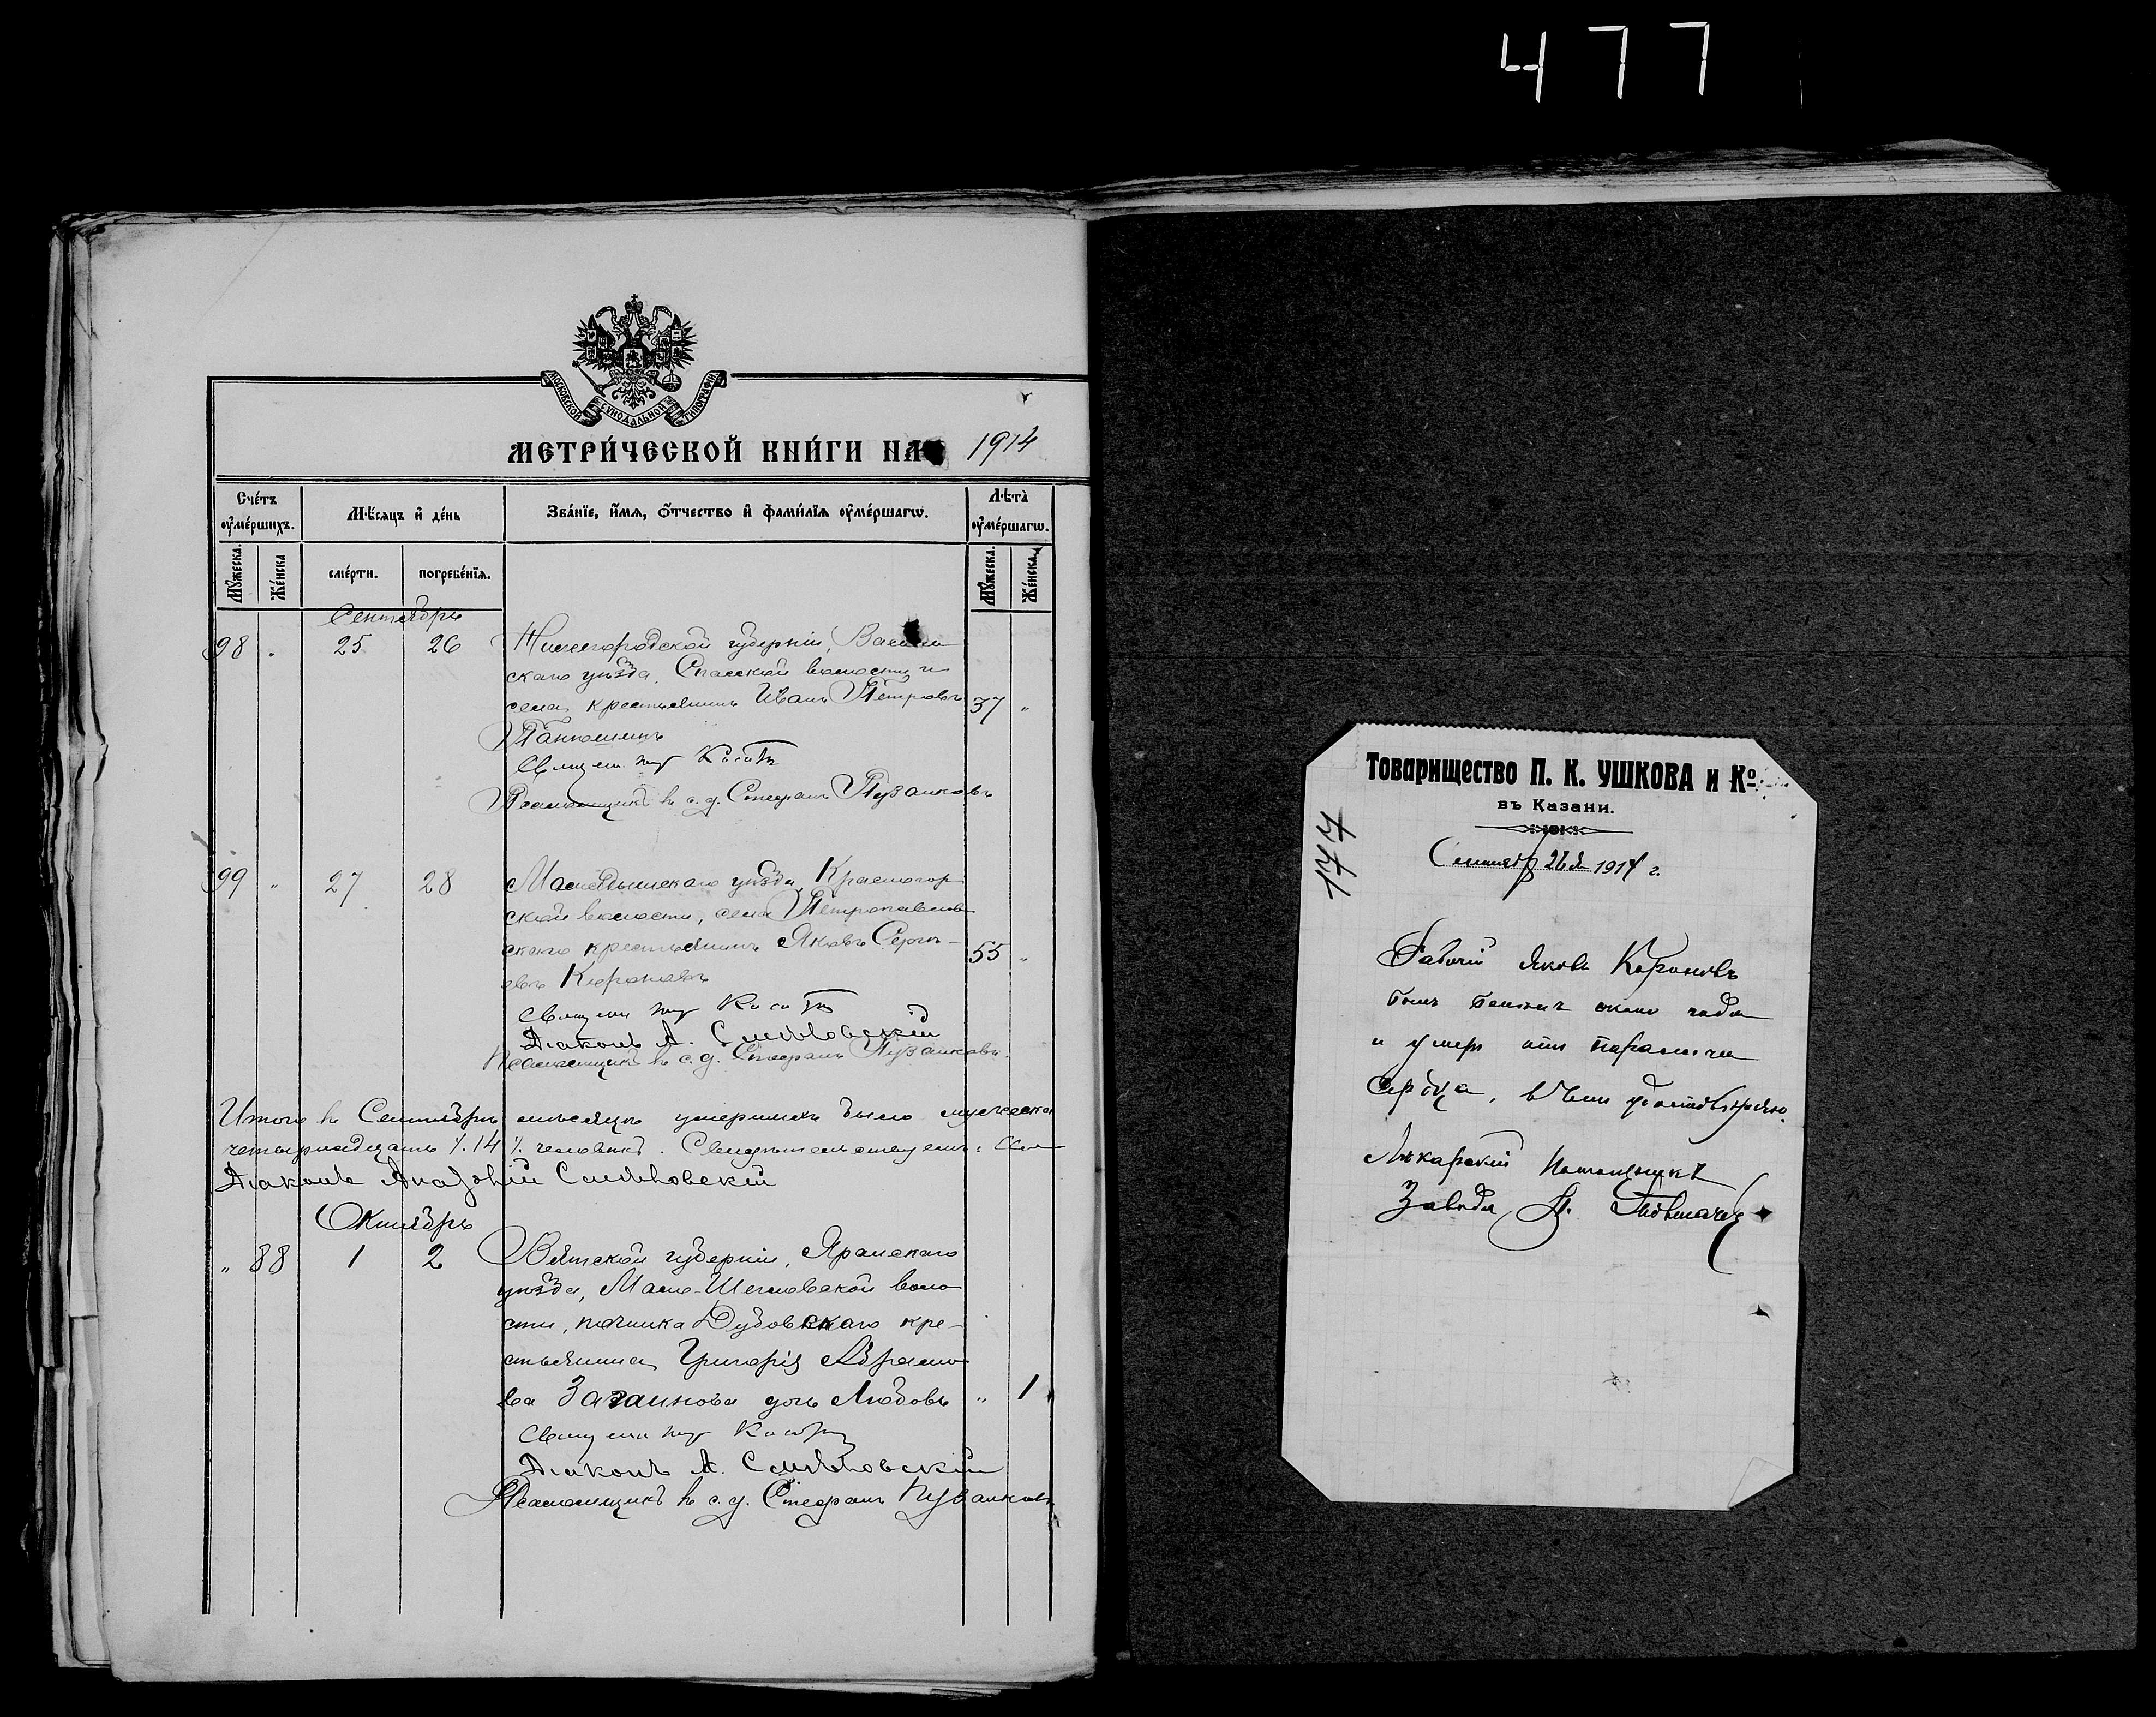 477
МОСКОВСКОЙ СѴНОДАЛЬНОЙ ТИПОГРАФІИ
МЕТРИ́ЧЕСКОЙ КНИ́ГИ НА 1914
Сче́тъ оумершихъ.
Мѣсяцъ и де́нь
Зва́нїе, и́мя, о́тчество и фами́лїя оуме́ршагѡ.
Лѣта̀ оуме́ршагѡ.
Мꙋжеска.
Же́нска
сме́рти.
погребе́нїя.
Мꙋжеска.
Же́нска.
Сентябрь
98 " 25 26 Нижегородской губерніи, Василь
скаго уѣзда, Спасской волости и
села крестьянинъ Иванъ Петровъ 37 "
Священ.
Псаломщикъ в с. д. Стефанъ Пузанковъ
99 " 27 28 Мамадышскаго уѣзда, Красногор
ской волости, села Петропавлов
скаго крестьянинъ Яковъ Сергѣ- 55 "
евъ Короновъ
Священ
Діаконъ А. Смѣловскій
Псаломщикъ в с. д. Стефанъ Пузанковъ.
Итого в Сентябрѣ мѣсяцѣ умершихъ было мужеска
четырнадцать /. 14 /. человѣкъ. Свидѣтельствуемъ:
Діаконъ Смѣловскій
Октябрь
" 88 1 2 Вятской губерніи, Яранскаго
уѣзда, Мало-Щегловской воло
сти, починка Дубовскаго кре-
стьянина Григорія Абрамо
ва Загаинова дочь Любовь " 1
Священ
Діаконъ А. Смѣловскій
Псаломщикъ в с. д. Стефанъ Пузанковъ
Товарищество П. К. УШКОВА и Ко
въ Казани.
177
Сентябр 26 дн 1914 г.
Рабочій Яковъ Короновъ
былъ боленъ около года
и умеръ отъ паралича
сердца, в чемъ удостовѣряю.
Лѣкарскій Помощникъ
Завода П.